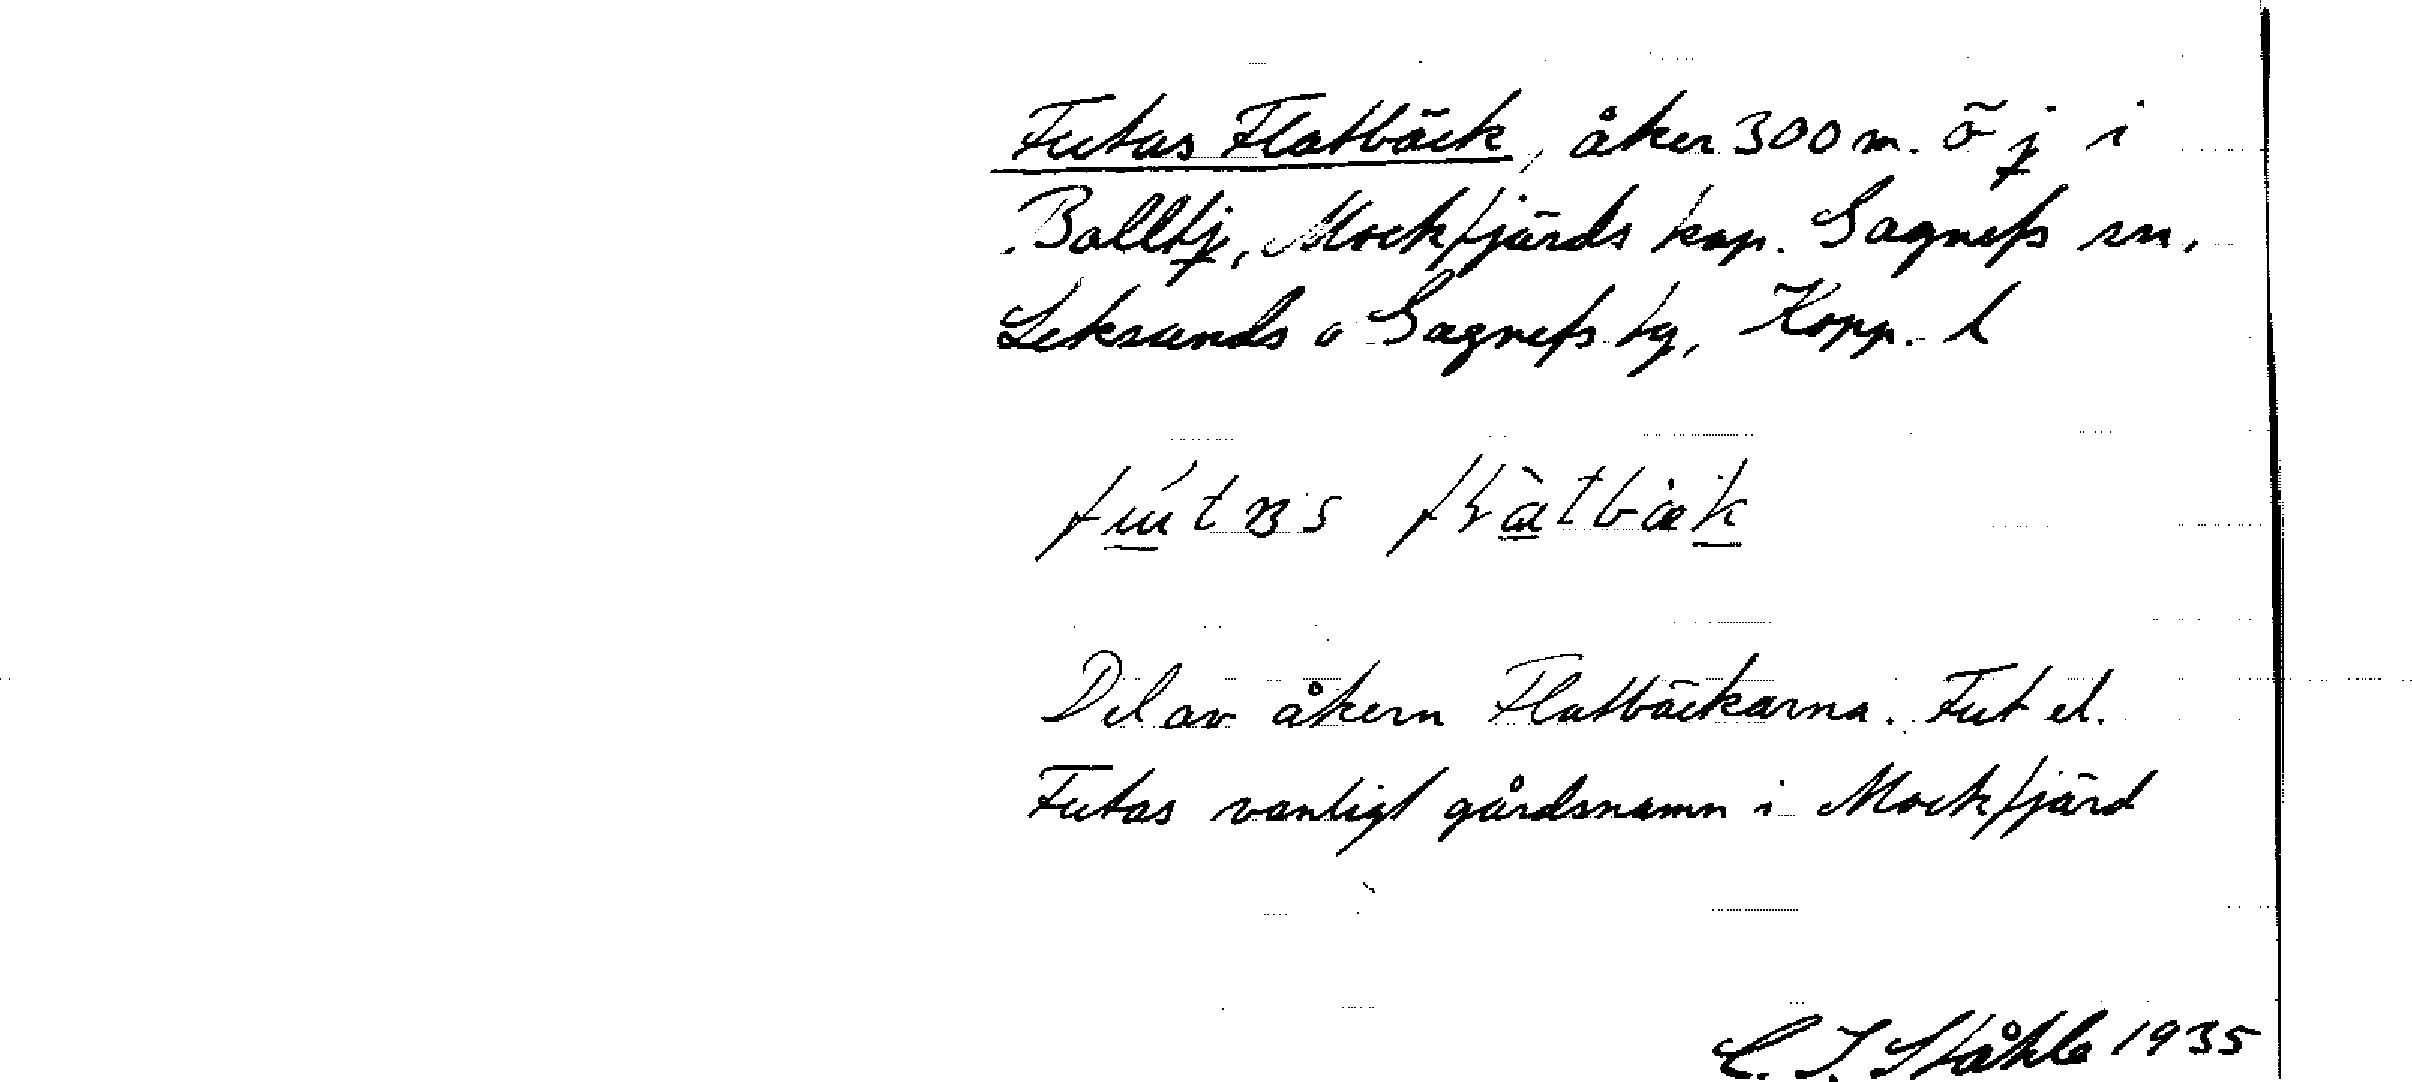 Futas Flatbäck, åker 300 m. ö j i
Balltj, Mockfjärds kap. Gagnefs sn,
Leksands o Gagnefs tg, Kopp. l
Del av åkern Flatbäckarna. Fut el.
Futas vanligt gårdsnamn i Mockfjärd
C. I. Ståhle 1935